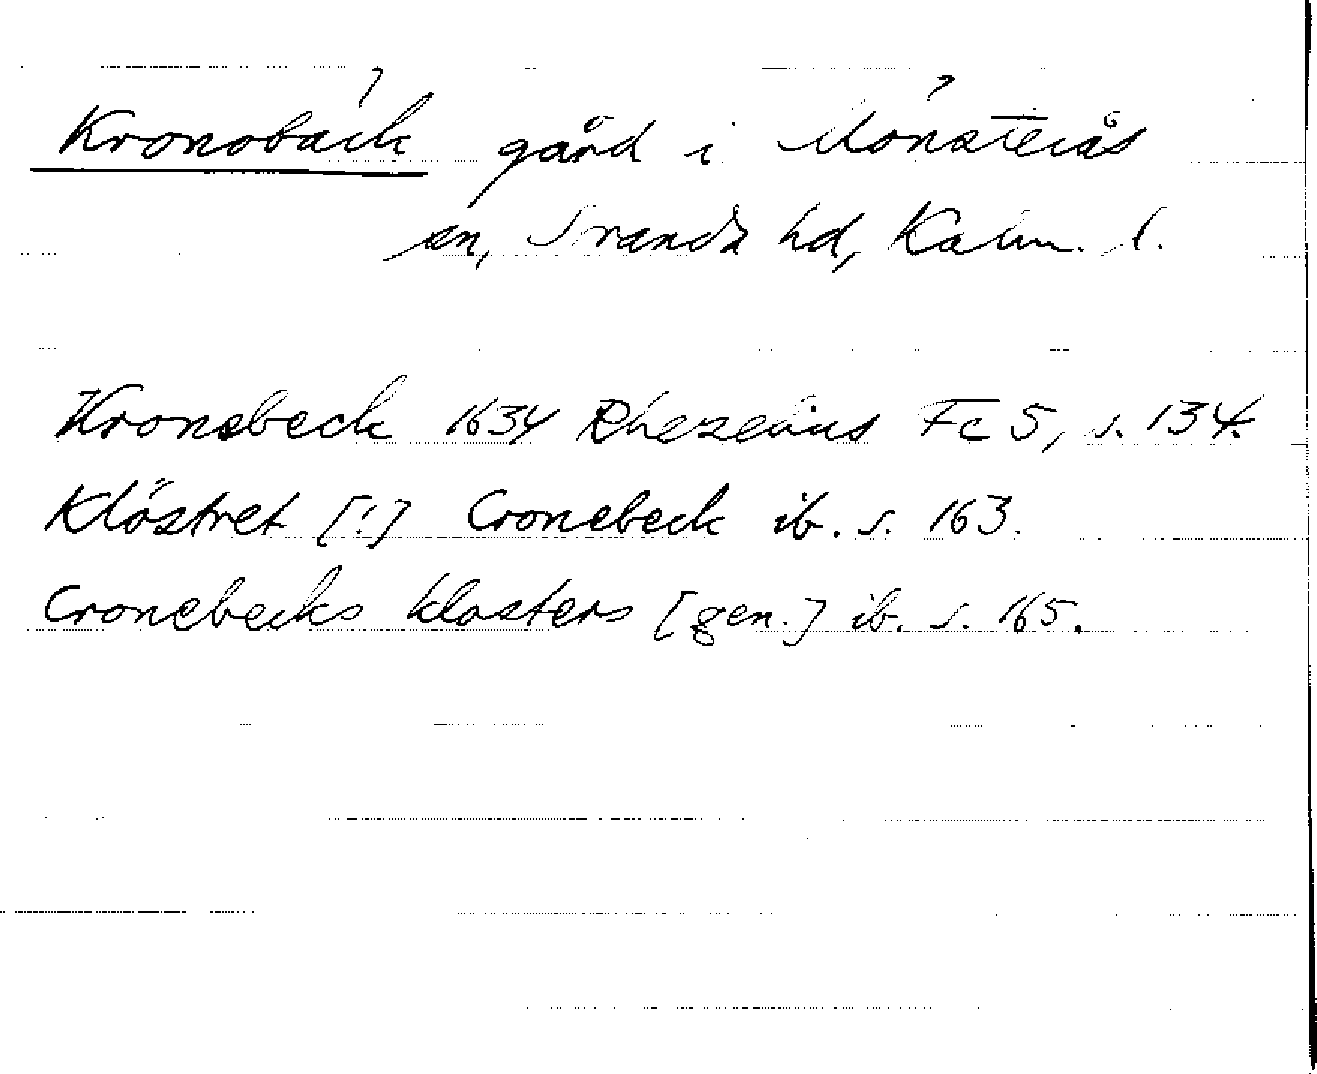 Kronobäck gård i Mönsterås
sn, Stranda hd, Kalm. l.
Kronebeck 1634 Rhezelius Fc 5, s. 134.
Klöstret [!] Cronebeck ib. s. 163.
Cronebecks klosters [gen.] ib. s. 165.